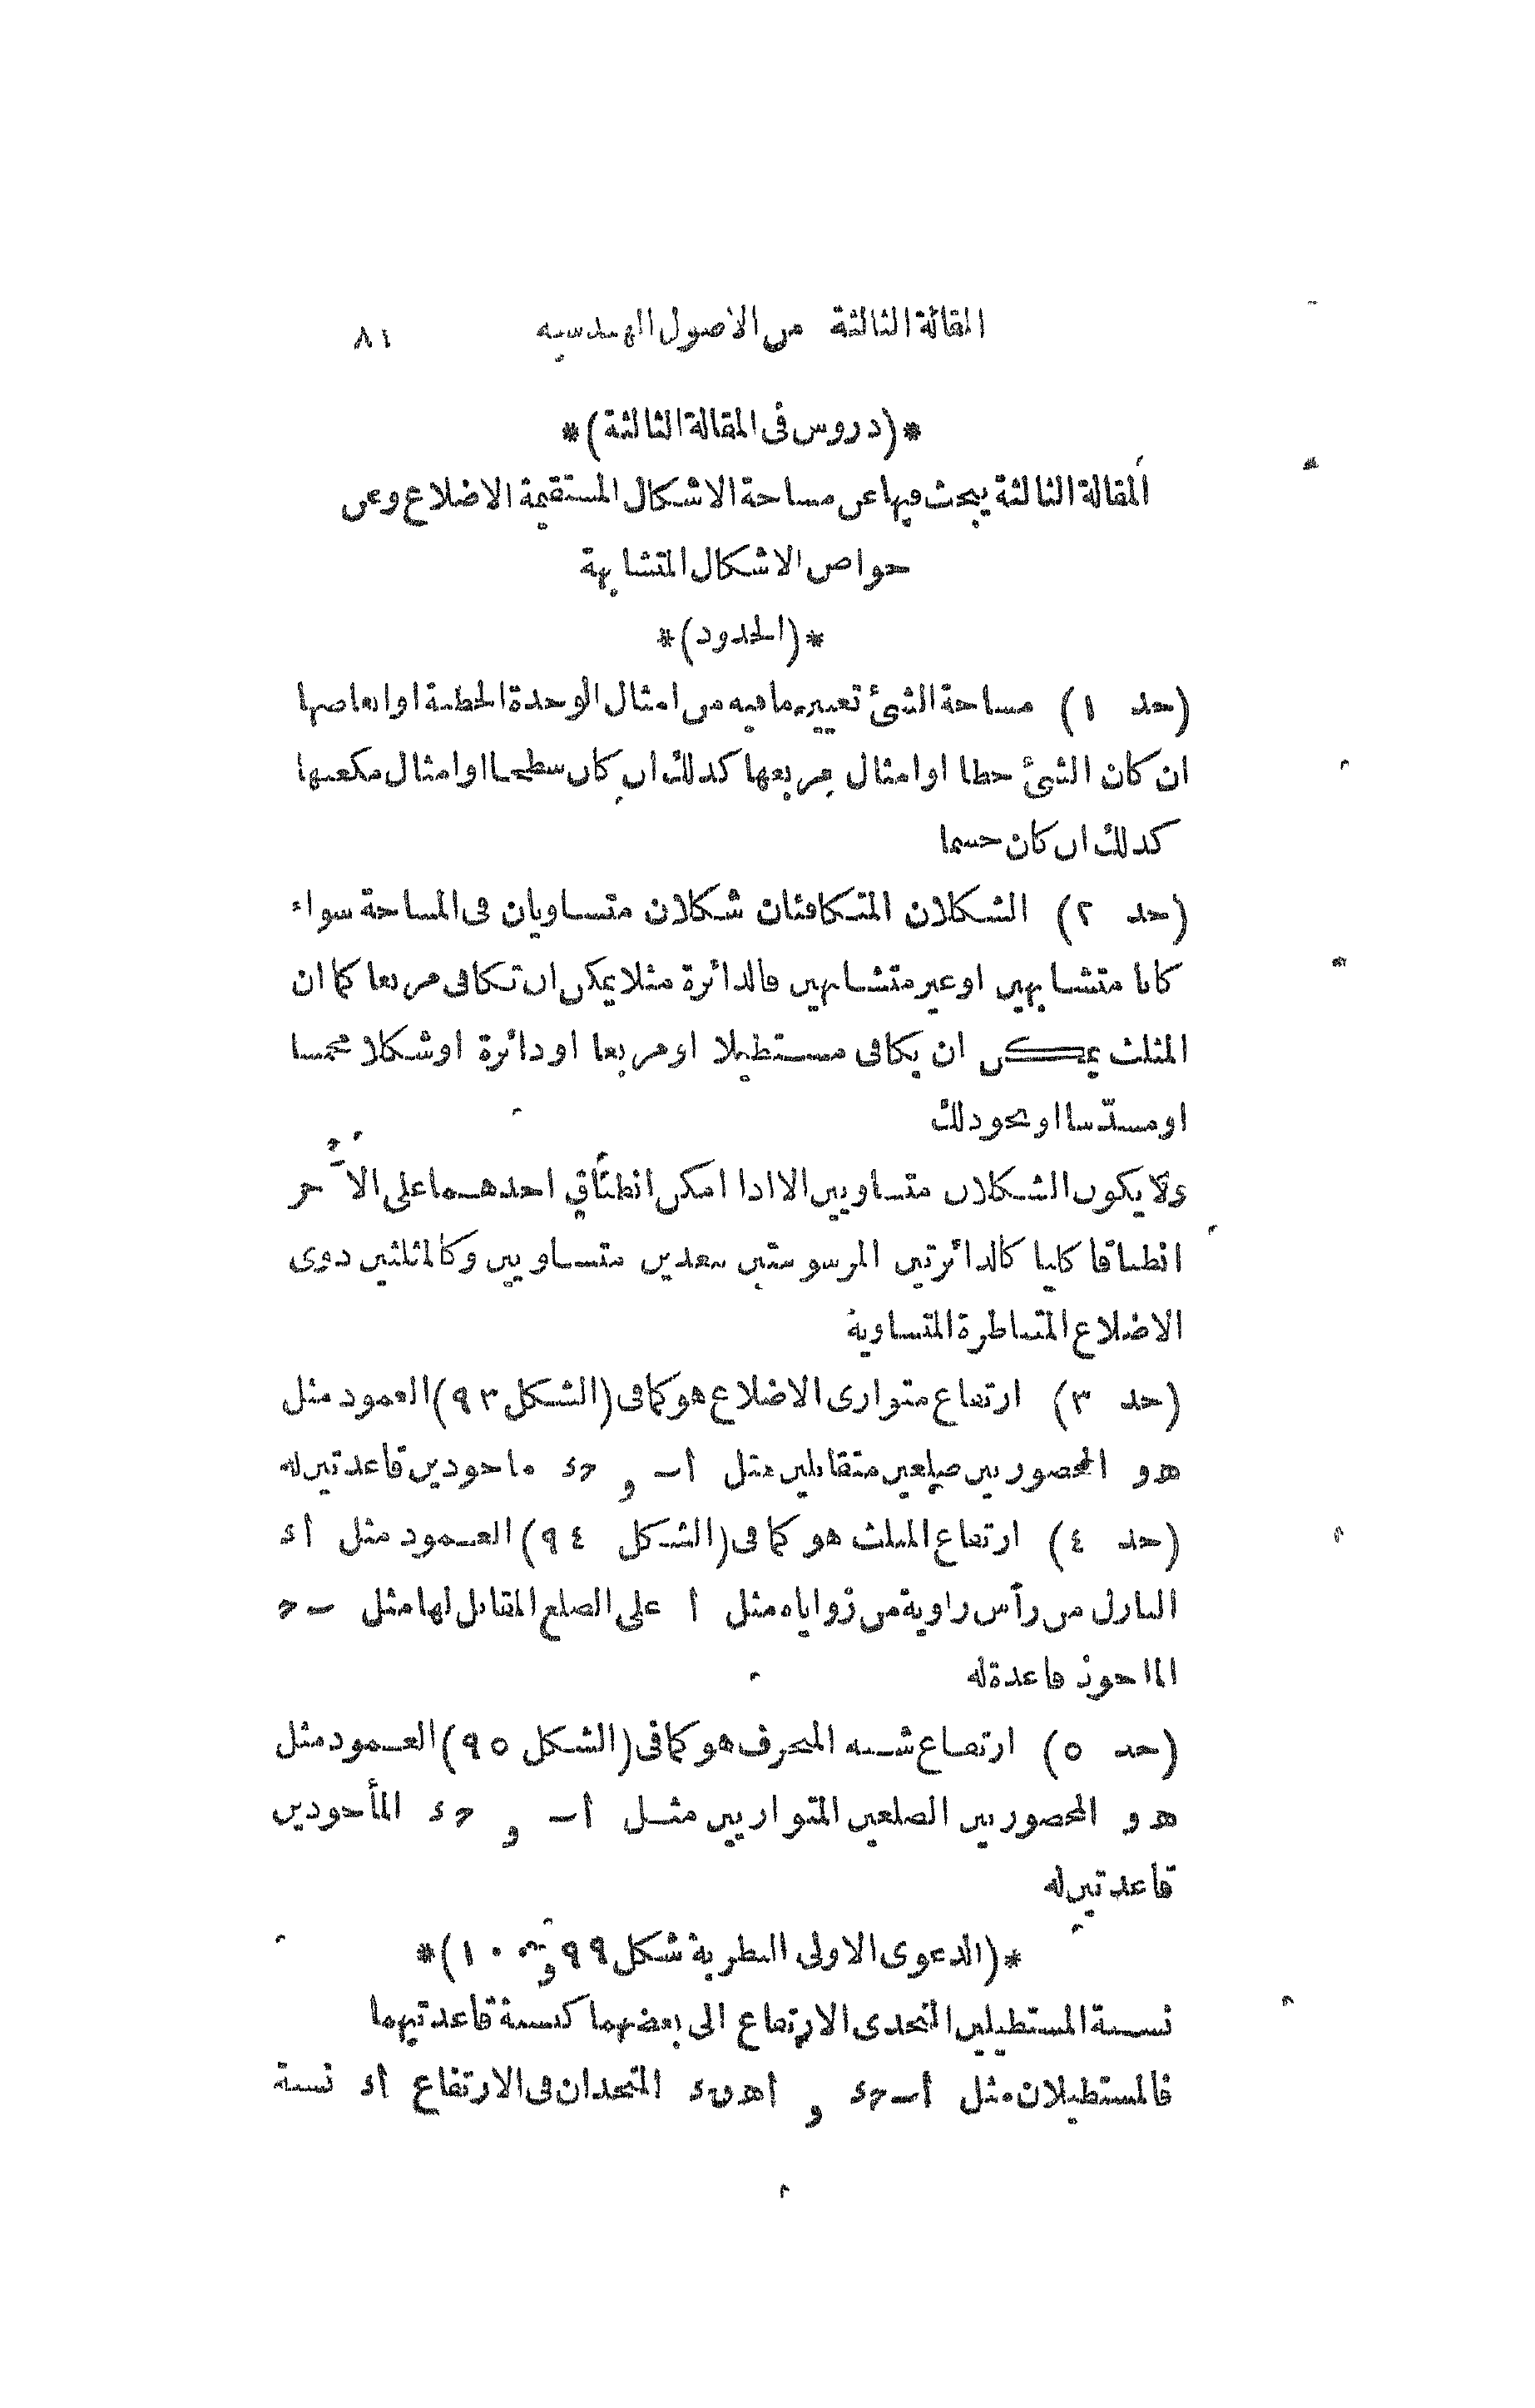 المقالة الثالثة من الاصول الهندسيه ٨١
*(دروس فى المقالة الثالثة)*
المقالة الثالثة يبحث فيها عن مساحة الاشكال المستقيمة الاضلاع وعن
خواص الاشكال المتشابهة
*(الحدود)*
(حد ١) مساحة الشئ تعيير ما فيه من امثال الوحدة الخطية او ابعاضها
ان كان الشئ خطا او امثال مربعها كذلك ان كان سطحا او امثال مكعبها
كذلك ان كان جسما
(حد ٢) الشكلان المتكافئان شكلان متساويان فى المساحة سواء
كانا متشابهين او غير متشابهين فالدائرة مثلا يمكن ان تكافى مربعا كما ان
المثلث يمكن ان يكافى مستطيلا او مربعا او دائرة او شكلا مخمسا
او مسدّسا او نحو ذلك
ولا يكون الشكلان متساويين الا اذا امكن انطباق احدهما على الآخر
انطباقا كليا كالدائرتين المرسومتين ببعدين متساويين وكالمثلثين ذوى
الاضلاع المتناظرة المتساوية
(حد ٣) ارتفاع متوازى الاضلاع هو كما فى (الشكل ٩٣) العمود مثل
هو المحصور بين ضلعين متقابلين مثل أب و حد ماخوذين قاعدتين له
(حد ٤) ارتفاع المثلث هو كما فى (الشكل ٩٤) العمود مثل أد
النازل من رأس زاوية من زواياه مثل أ على الضلع المقابل لها مثل بح
الماخوذ قاعدة له
(حد ٥) ارتفاع شبه المنحرف هو كما فى (الشكل ٩٥) العمود مثل
هو المحصور بين الضلعين المتوازيين مثل أب و حد المأخوذين
قاعدتين له
*(الدعوى الاولى النظرية شكل ٩٩ و ١٠٠)*
نسبة المستطيلين المتحدى الارتفاع الى بعضهما كنسبة قاعدتيهما
فالمستطيلان مثل أبحد و أهرد المتحدان فى الارتفاع أد نسبة